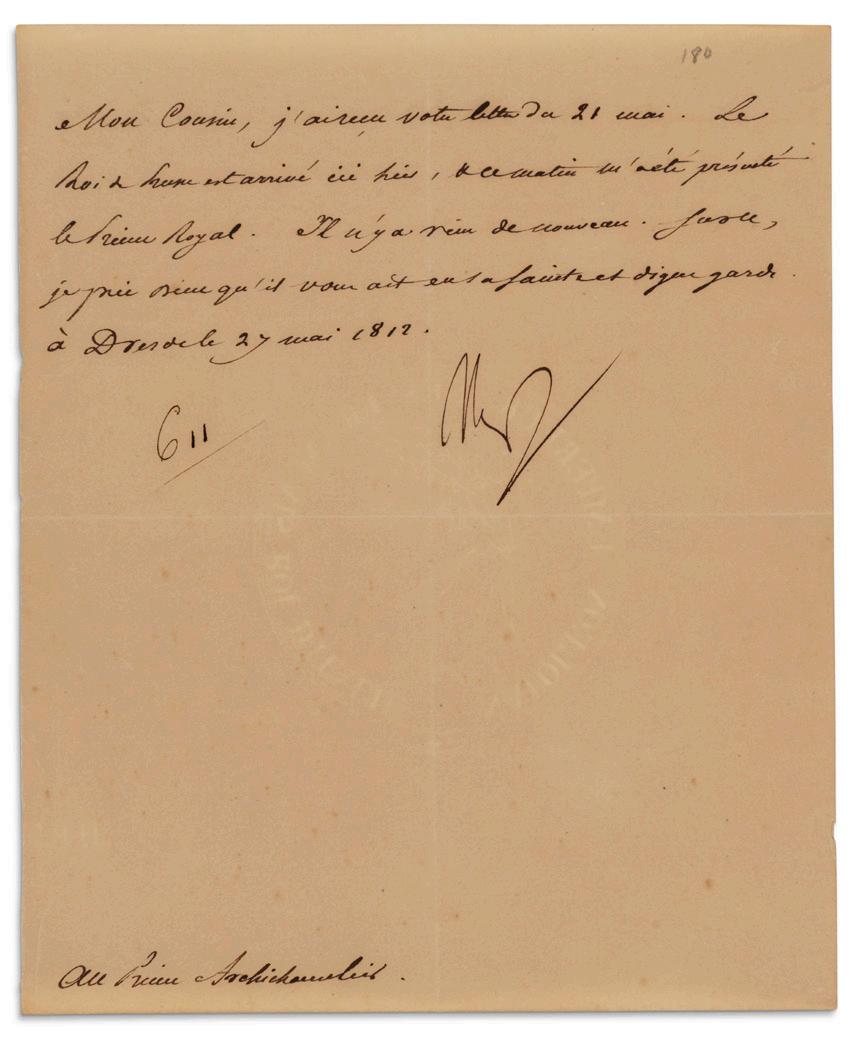 180
Mon Cousin, j'ai reçu votre lettre du 21 mai. Le
Roi de Prusse est arrivé ici hier, & ce matin m'a été présenté
le Prince Royal. Il n'y a rien de nouveau. Sur ce,
je prie Dieu qu'il vous ait en sa sainte et digne garde.
à Dresde le 27 mai 1812.
611
Au Prince Archichancelier.